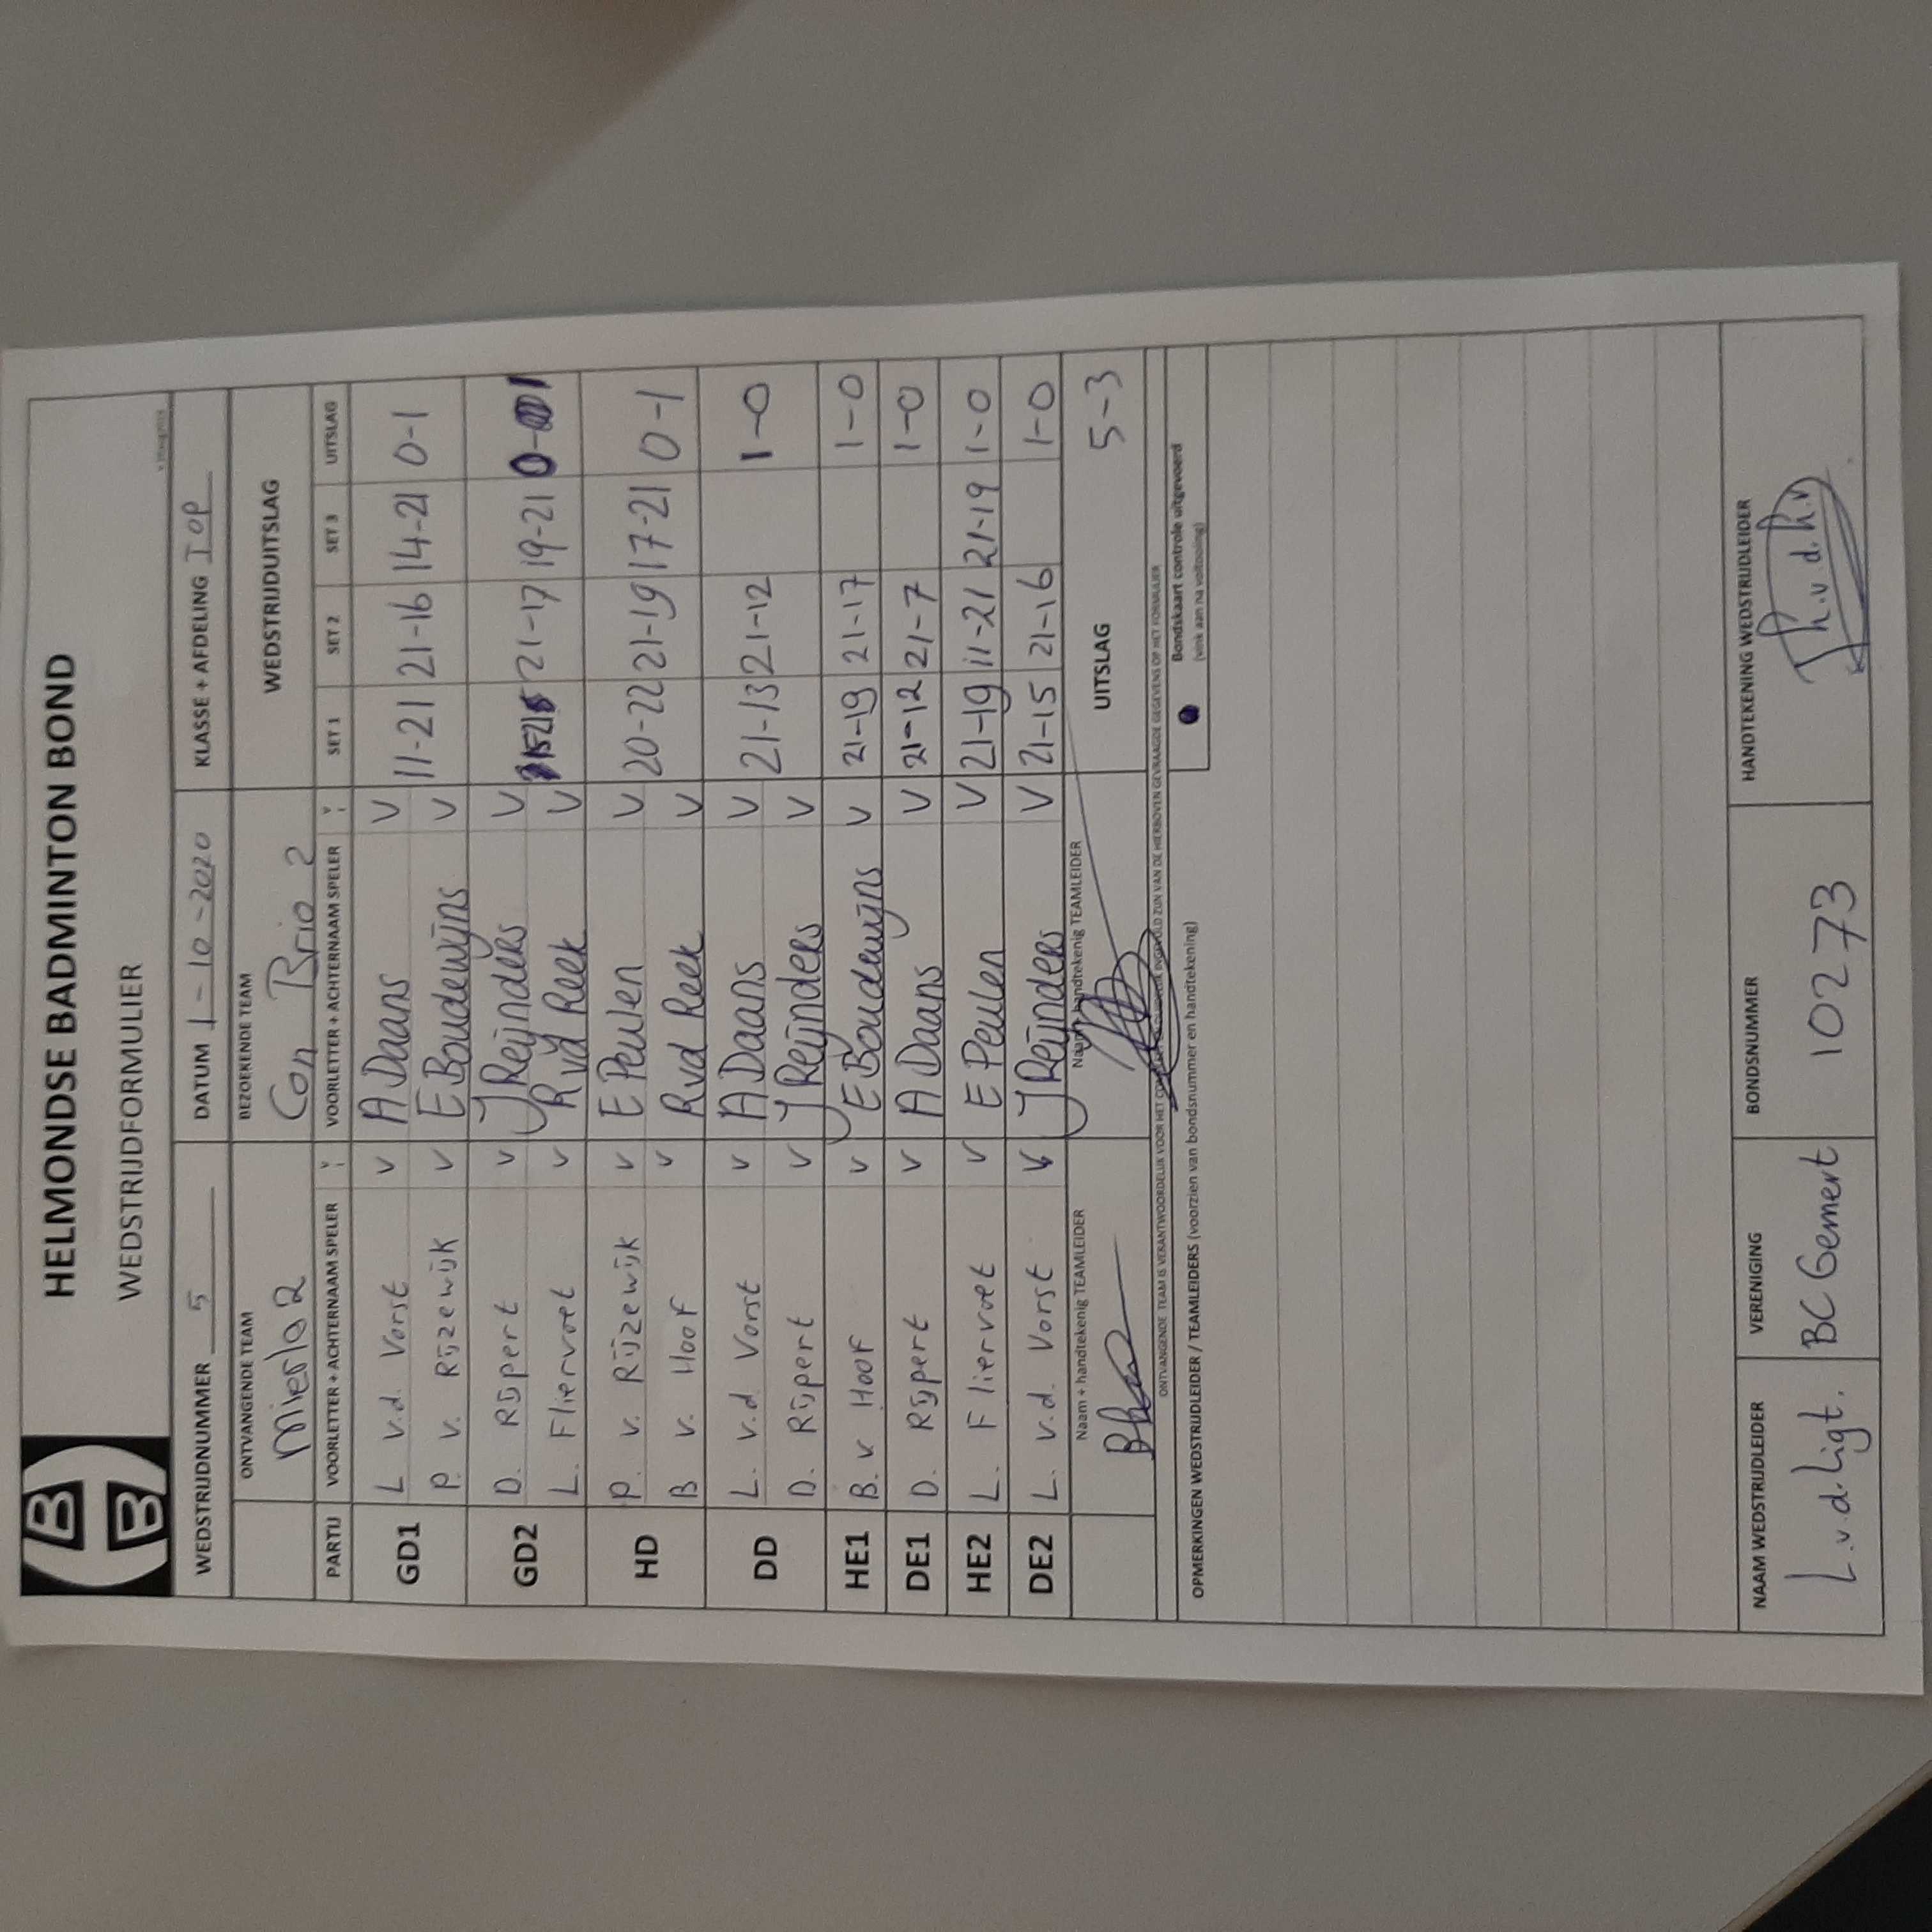 HELMONDSE BADMINTON BOND
WEDSTRIJDFORMULIER
WEDSTRIJDNUMMER 5 DATUM 1-10-2020 KLASSE + AFDELING TOP
ONTVANGENDE TEAM BEZOEKENDE TEAM WEDSTRIJDUITSLAG
Mierlo 2 Con Brio 2
PARTIJ VOORLETTER + ACHTERNAAM SPELER VOORLETTER + ACHTERNAAM SPELER SET 1 SET 2 SET 3 UITSLAG
GD1 L v.d. Vorst V A Daans V 11-21 21-16 14-21 0-1
P. v. Rijzewijk V E Boudewijns V
GD2 D. Rijpert V J Reijnders V 21-17 19-21 0-1
L. Fliervoet V R vd Reek V
HD P. v. Rijzewijk V E Peulen V 20-22 21-19 17-21 0-1
B v. Hoof V R vd Reek V
DD L. v.d. Vorst V A Daans V 21-13 21-12 1-0
D. Rijpert V J Reijnders V
HE1 B. v Hoof V E Boudewijns V 21-19 21-17 1-0
DE1 D. Rijpert V A Daans V 21-12 21-7 1-0
HE2 L. Fliervoet V E Peulen V 21-19 11-21 21-19 1-0
DE2 L. v.d. Vorst V J Reijnders V 21-15 21-16 1-0
Naam + handtekenig TEAMLEIDER Naam + handtekenig TEAMLEIDER UITSLAG 5-3
ONTVANGENDE TEAM IS VERANTWOORDELIJK VOOR HET INGEVULD ZIJN VAN DE HIERBOVEN GEVRAAGDE GEGEVENS OP HET FORMULIER
Bondskaart controle uitgevoerd
(vink aan na voltooiing)
OPMERKINGEN WEDSTRIJDLEIDER / TEAMLEIDERS (voorzien van bondsnummer en handtekening)
NAAM WEDSTRIJDLEIDER VERENIGING BONDSNUMMER HANDTEKENING WEDSTRIJDLEIDER
L.v.d.Ligt. BC Gemert 10273